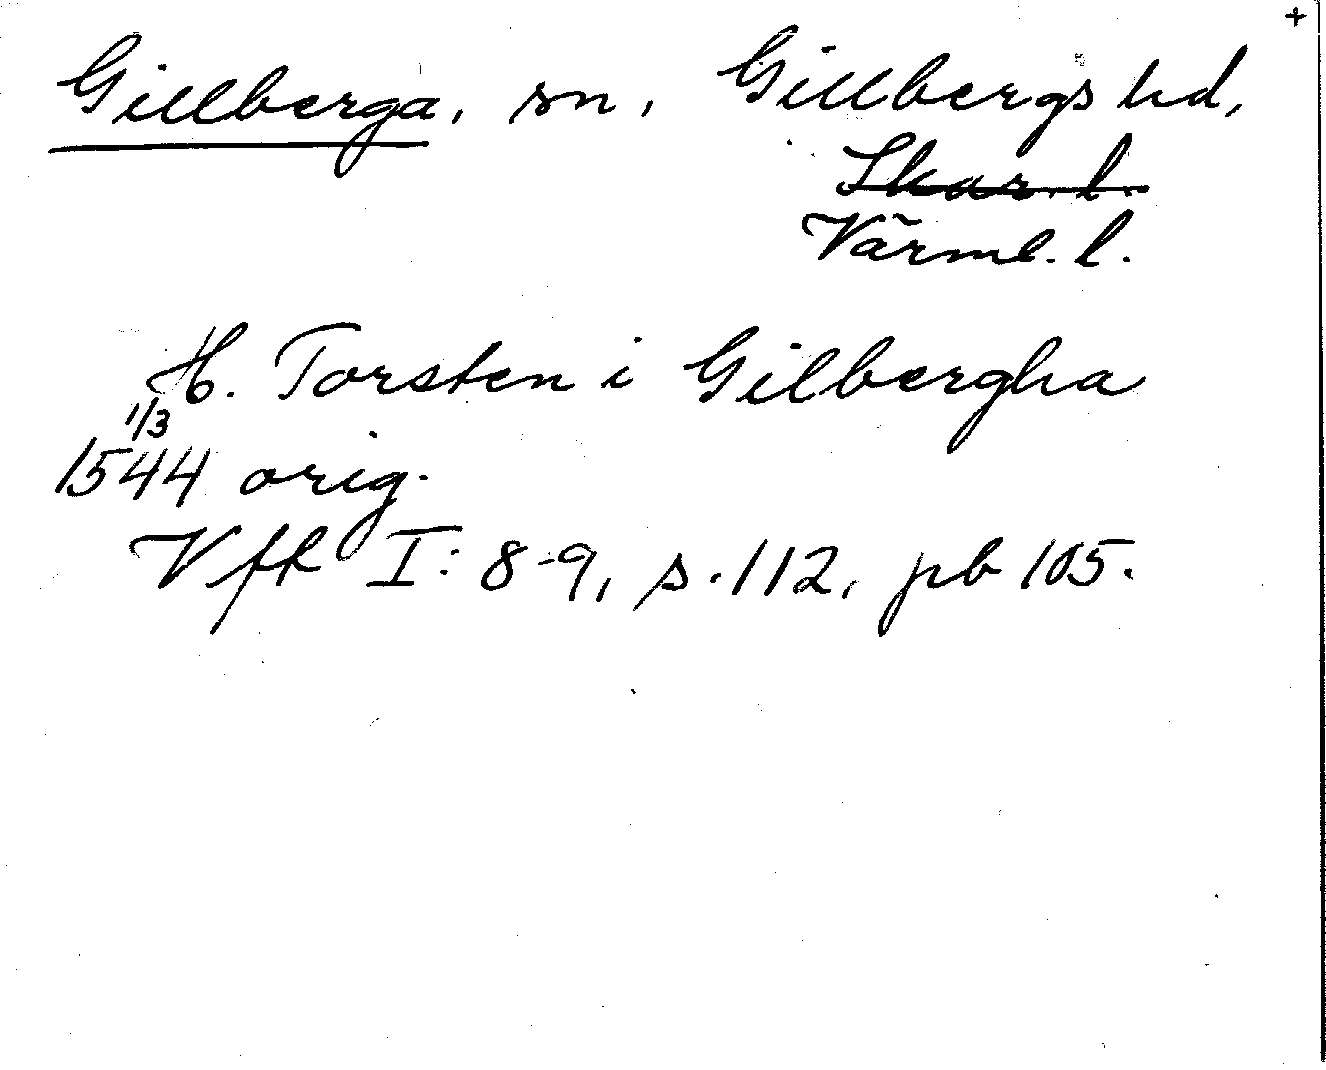 +
Gillberga, sn, Gillbergs hd,
Skar. l.
Värml. l.
H. Torsten i Gilbergha
1/3
1544 orig.
Vfr I: 8-9, s. 112, pb 105.